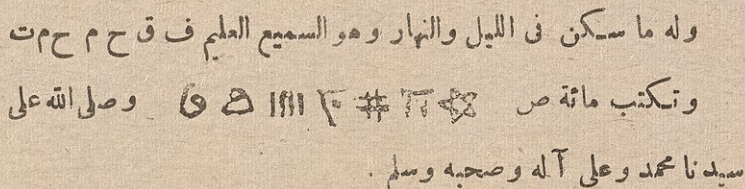 وله ما سكن فى الليل والنهار وهو السميع العليم ف ق ح م ح م ت
وتكتب مائة ص وصلى الله على
سيدنا محمد وعلى آله وصحبه وسلم .